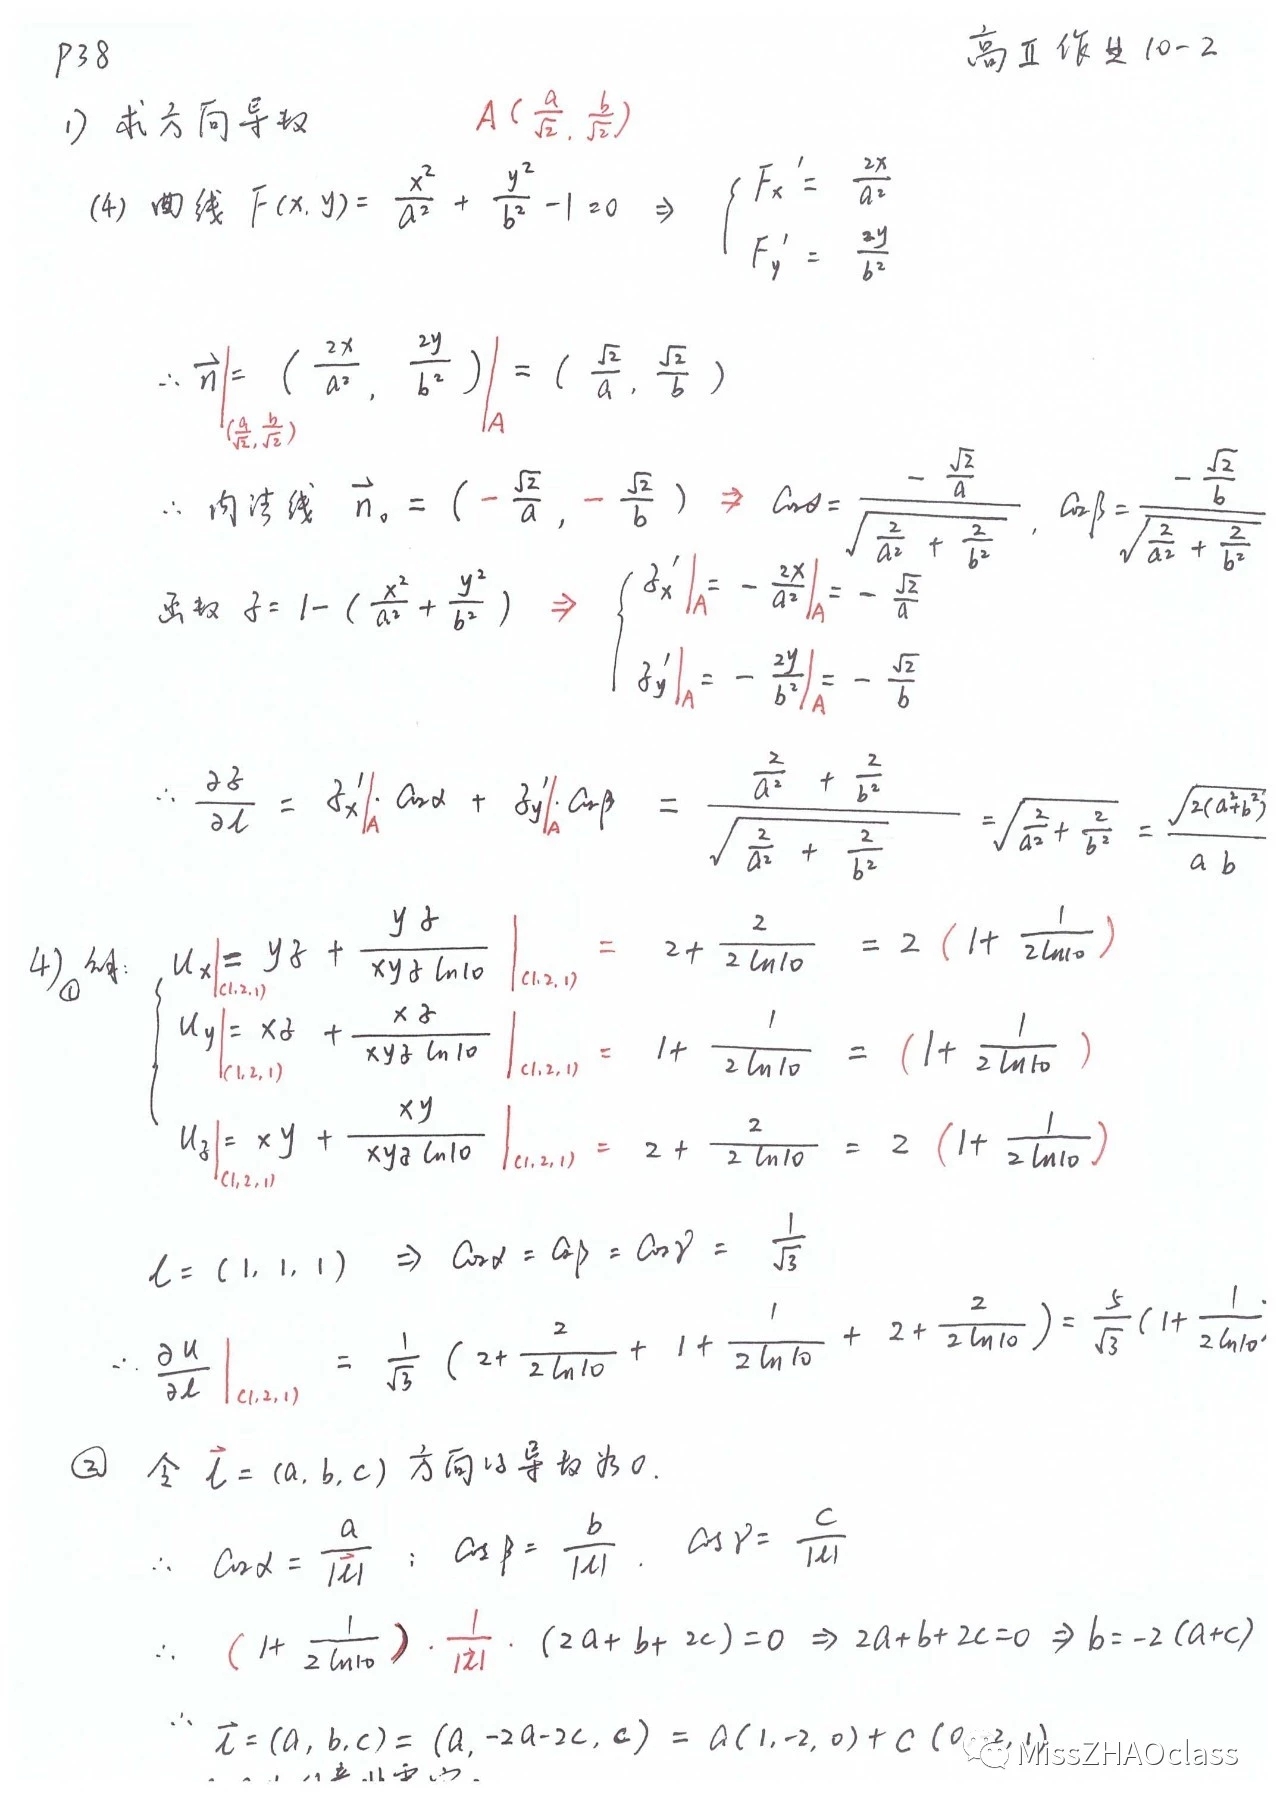 P38 高Ⅱ作业10-2
1) 求方向导数 A(a/√2, b/√2)
(4) 曲线 F(x,y)= x²/a² + y²/b² -1=0 ⇒ { Fx′= 2x/a²
Fy′= 2y/b²
∴ n⃗|(a/√2, b/√2) = (2x/a², 2y/b²)|A = (√2/a, √2/b)
∴ 内法线 n⃗₀ = (-√2/a, -√2/b) ⇒ Cosα= (-√2/a)/√(2/a² + 2/b²), Cosβ= (-√2/b)/√(2/a² + 2/b²)
函数 z=1-(x²/a²+y²/b²) ⇒ { zx′|A = -2x/a²|A = -√2/a
zy′|A = -2y/b²|A = -√2/b
∴ ∂z/∂l = zx′|A·Cosα + zy′|A·Cosβ = (2/a² + 2/b²)/√(2/a² + 2/b²) =√(2/a²+2/b²) = √(2(a²+b²))/ab
4)① 解: { ux|(1,2,1) = yz + yz/(xyz ln10) |(1,2,1) = 2+ 2/(2ln10) = 2(1+ 1/(2ln10))
uy|(1,2,1) = xz + xz/(xyz ln10) |(1,2,1) = 1+ 1/(2ln10) = (1+ 1/(2ln10))
uz|(1,2,1) = xy + xy/(xyz ln10) |(1,2,1) = 2+ 2/(2ln10) = 2(1+ 1/(2ln10))
l=(1,1,1) ⇒ Cosα=Cosβ=Cosγ= 1/√3
∴ ∂u/∂l|(1,2,1) = 1/√3 (2+ 2/(2ln10) + 1+ 1/(2ln10) + 2+ 2/(2ln10)) = 5/√3 (1+ 1/(2ln10)
② 令 l⃗=(a,b,c) 方向的导数为0.
∴ Cosα= a/|l⃗| ; Cosβ= b/|l| . Cosγ= c/|l|
∴ (1+ 1/(2ln10)) · 1/|l⃗| · (2a+b+2c)=0 ⇒ 2a+b+2c=0 ⇒ b=-2(a+c)
∴ l⃗=(a,b,c)=(a,-2a-2c,c) = a(1,-2,0)+c(0,-2,1)
MissZHAOclass